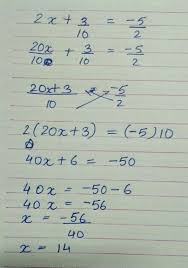 2x + 3/10 = -5/2
20x/10 + 3/10 = -5/2
20x+3/10 = -5/2
2(20x+3) = (-5)10
40x + 6 = -50
40x = -50-6
40x = -56
x = -56/40
x = 14